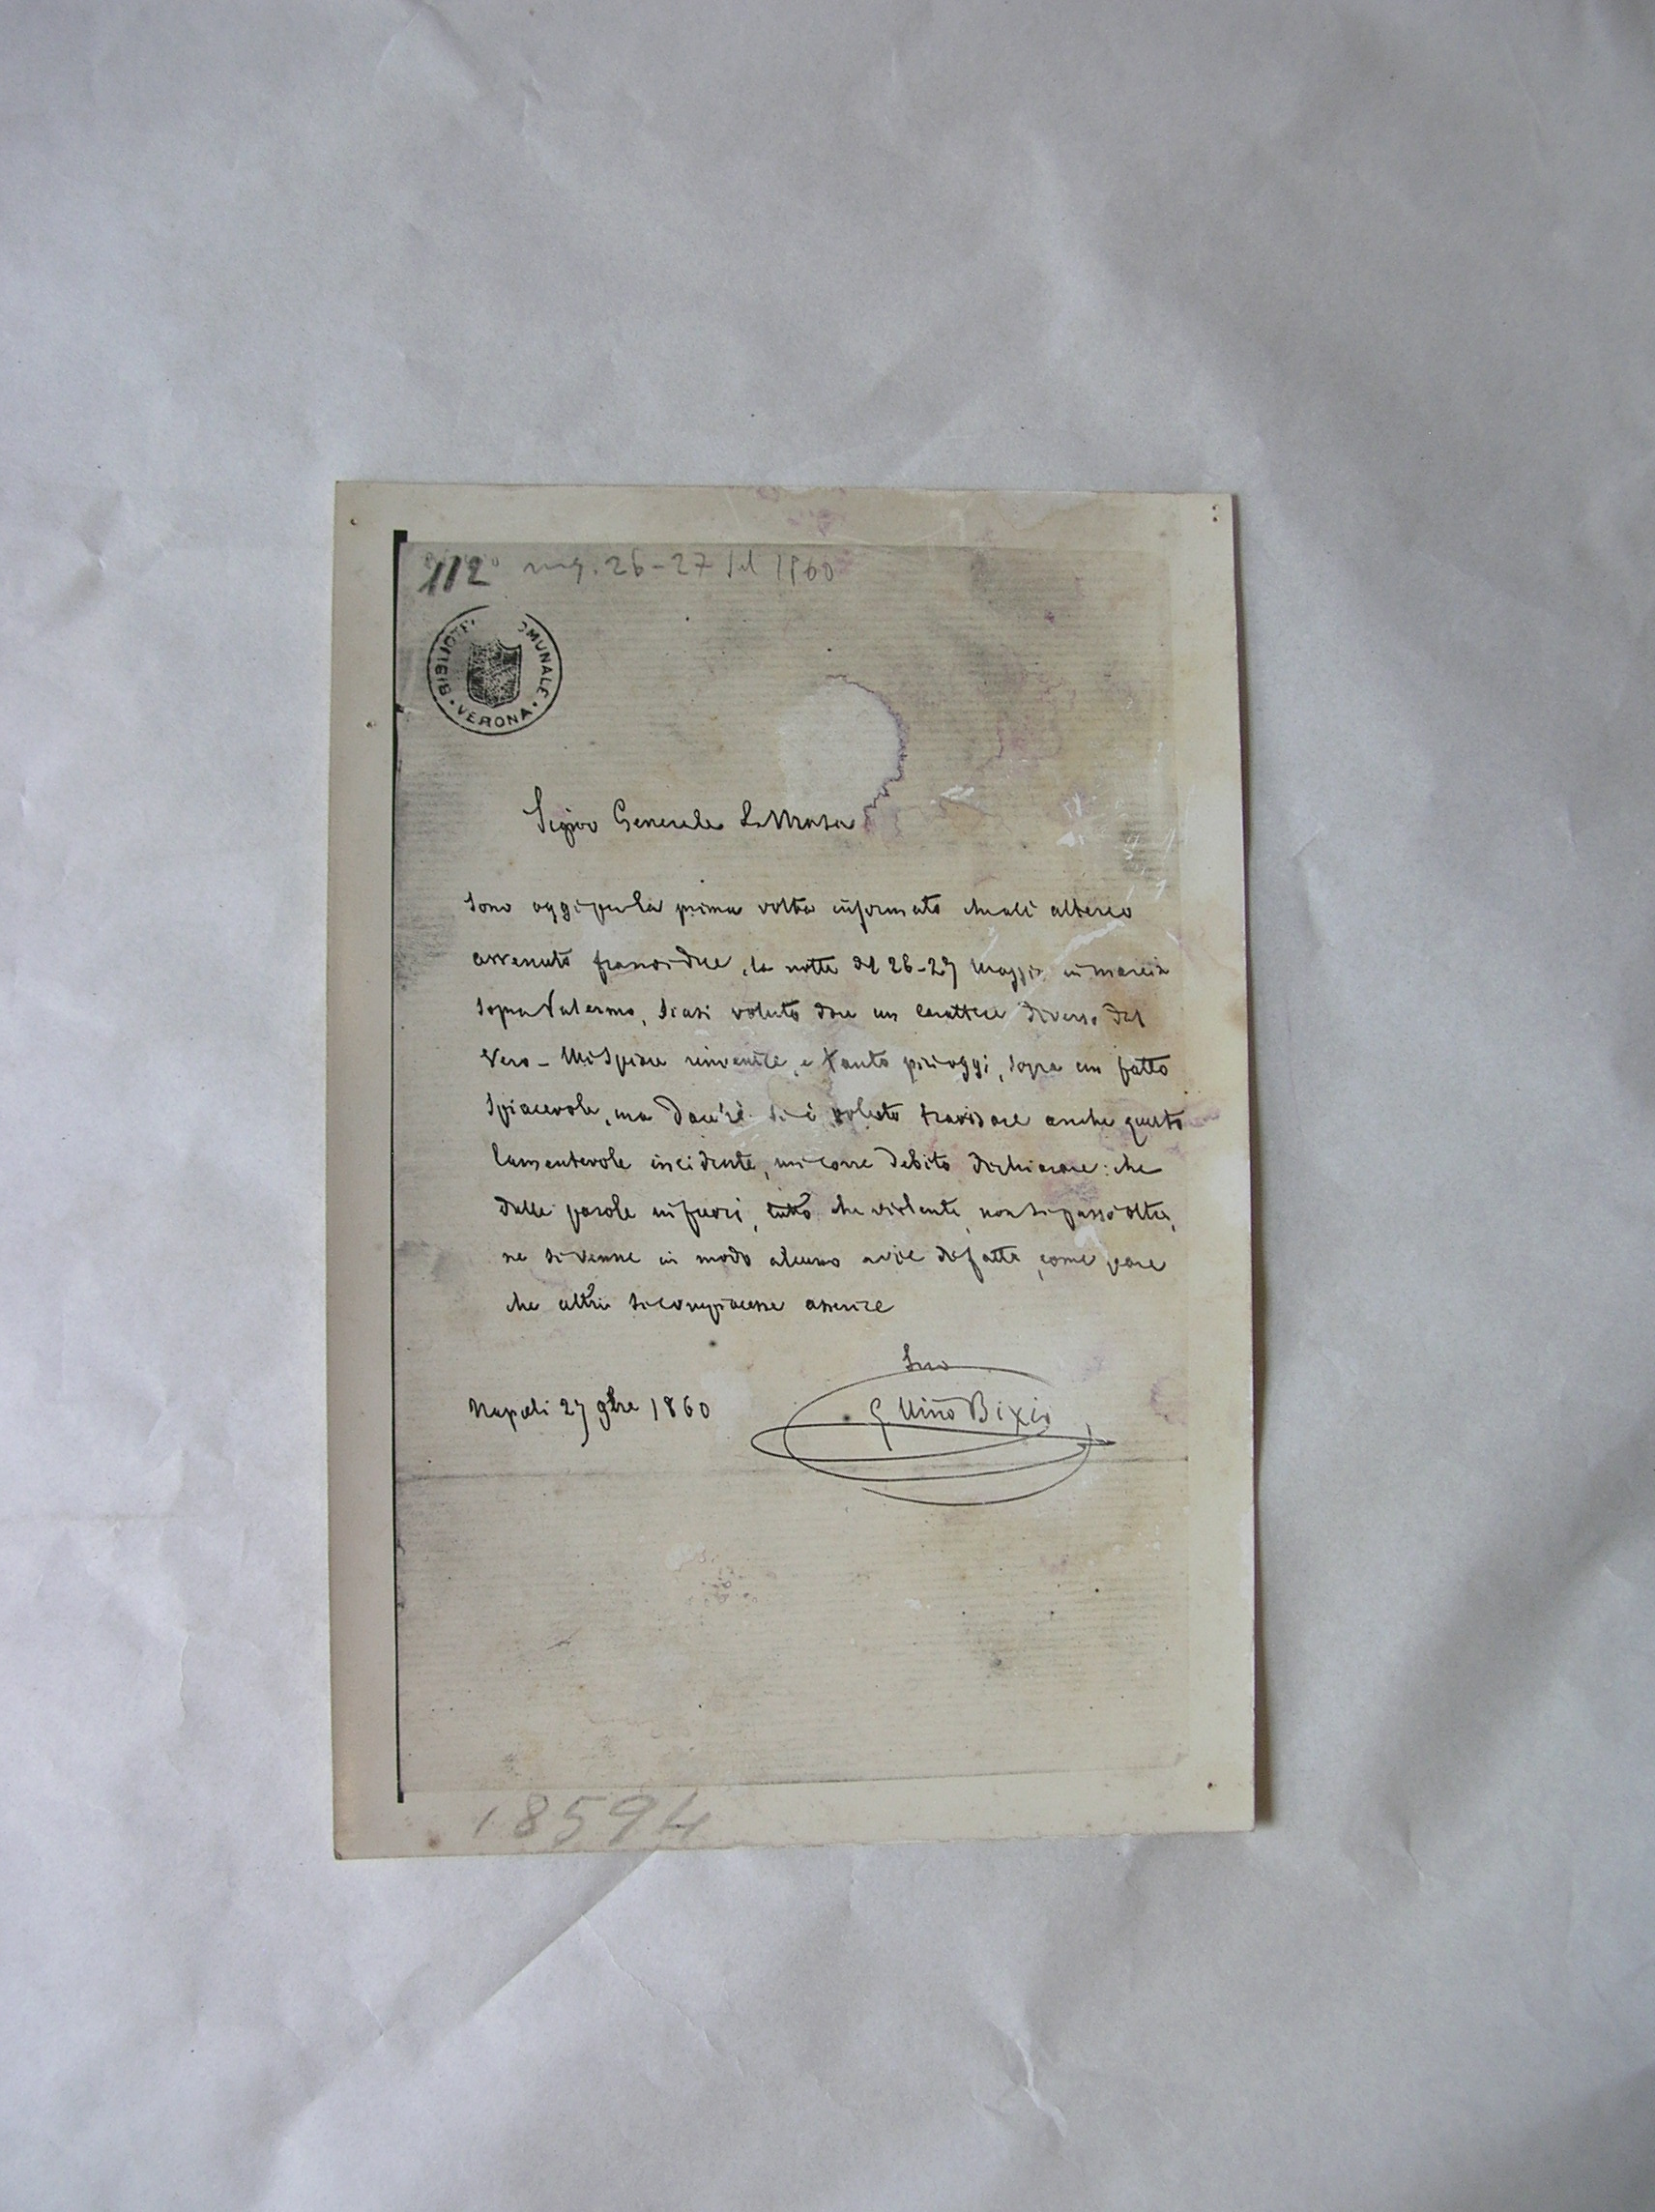 112 26-27 del 1860
BIBLIOTE OMUNALE
VERONA
Signor Generale La Masa
Sono oggi per la prima volta informato che all' alterco
avvenuto fra noi due, la notte del 26-27 Maggio in marcia
sopra Palermo, siasi voluto dare un carattere diverso dal
vero - Mi spiace rinvenire, e tanto più oggi, sopra un fatto
spiacevole, ma dacchè si è voluto travisare anche questo
lamentevole incidente, mi corre debito dichiarare: che
dalle parole in fuori, tutto che violente, non si passò oltre,
ne si venne in modo alcuno a vie di fatto, come pare
che altri si compiacesse asserire
Suo
Napoli 27 9bre 1860
G Nino Bixio
18594